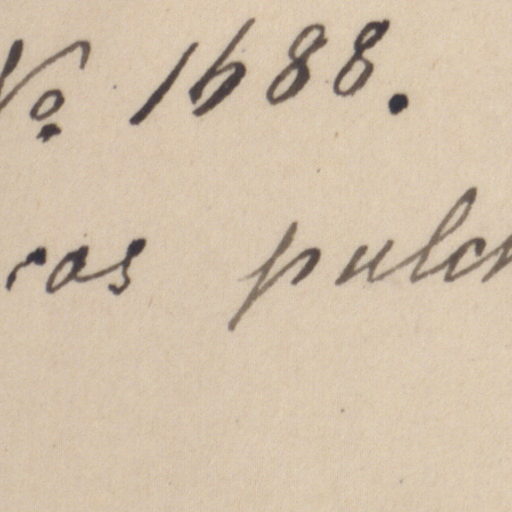 № 1688.
ros pulch